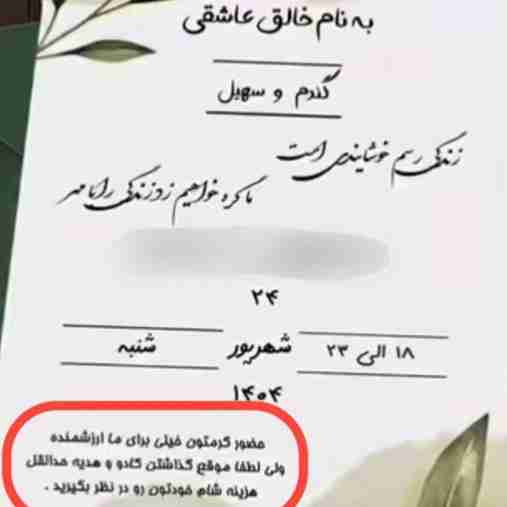 به نام خالق عاشقی
گندم و سهیل
زندگی رسم خوشایندی است
ما گره خواهیم زد زندگی را با مهر
۲۴
۱۸ الی ۲۳ شهریور شنبه
۱۴۰۴
حضور گرمتون خیلی برای ما ارزشمنده
ولی لطفا موقع گذاشتن کادو و هدیه حداقل
هزینه شام خودتون رو در نظر بگیرید .